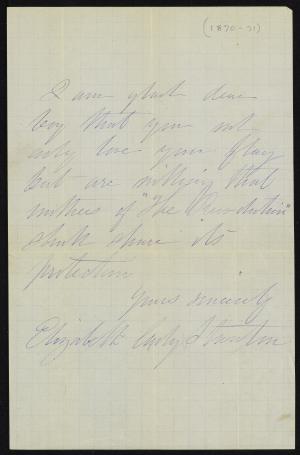 (1870-71)
I am glad dear
boy that you not
only love your flag
but are willing that
mothers of "The Revolution"
shall share its
protection
Yours sincerely
Elizabeth Cady Stanton